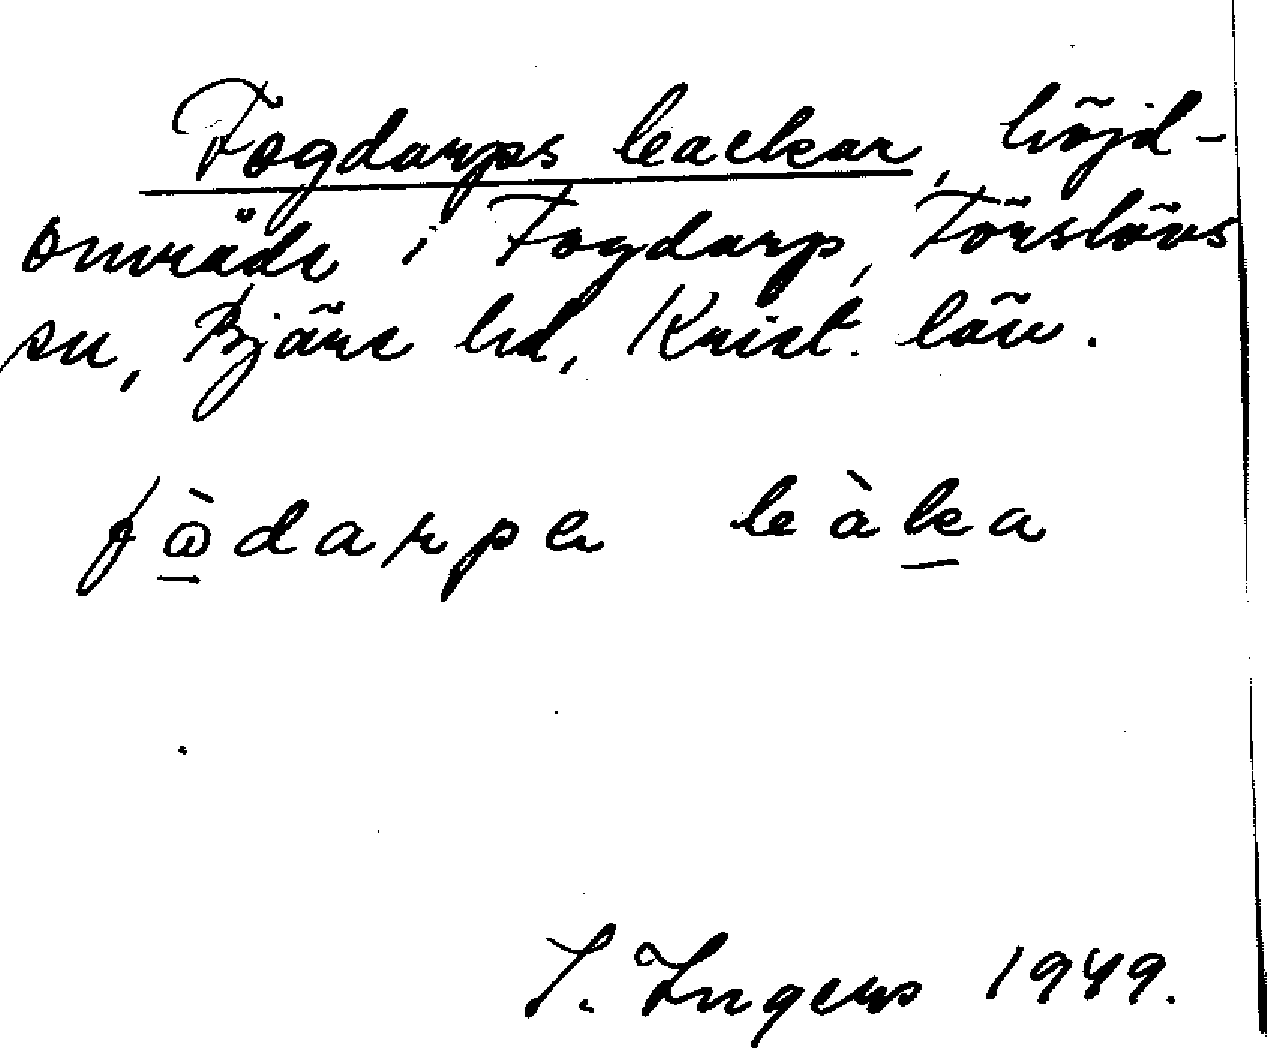 Fogdarps backar, höjd-
område i Fogdarp, Förslövs
sn, Bjäre hd, Krist. län.
bàka
I. Ingers 1949.